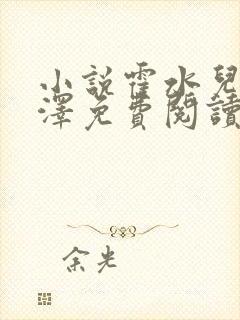 小說霍水兒
澤免費閱讀
余光